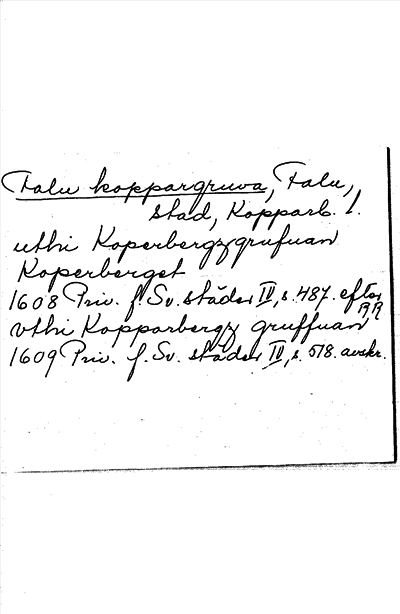 Falu koppargruva, Falu,
stad, Kopparb. l.
uthi Koperbergzgrufuan
Koperberget
1608 Priv. f. Sv. städer IV, s. 487. efter RR
vthi Kopparbergz gruffuan
1609 Priv. f. Sv. städer IV, s. 518. avskr.